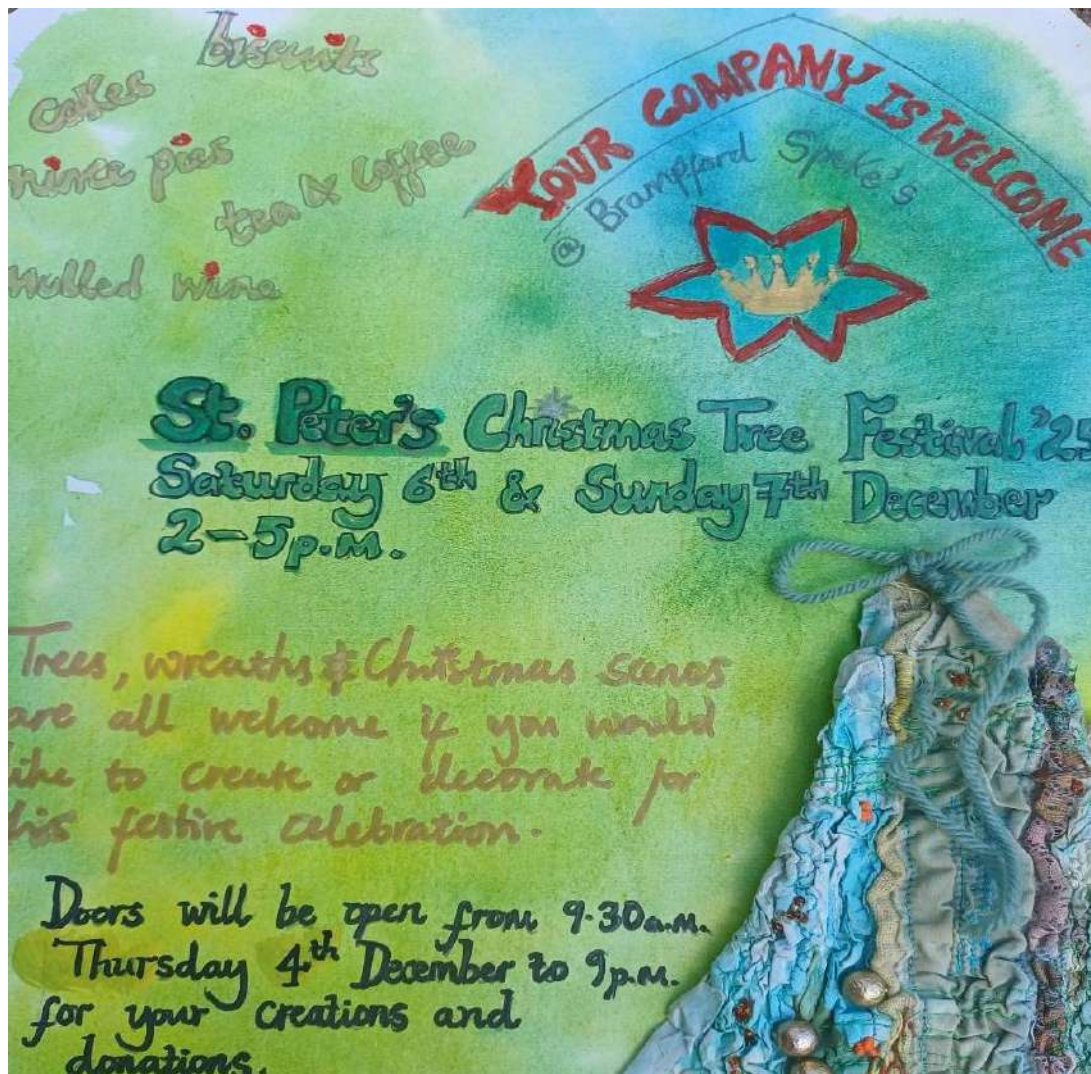 biscuits
cakes
mince pies
tea & coffee
Mulled wine
YOUR COMPANY IS WELCOME
@ Brampford Speke's
St. Peter's Christmas Tree Festival '25
Saturday 6th & Sunday 7th December
2-5p.m.
Trees, wreaths & Christmas scenes
are all welcome if you would
like to create or decorate for
this festive celebration.
Doors will be open from 9.30a.m.
Thursday 4th December to 9p.m.
for your creations and
donations.